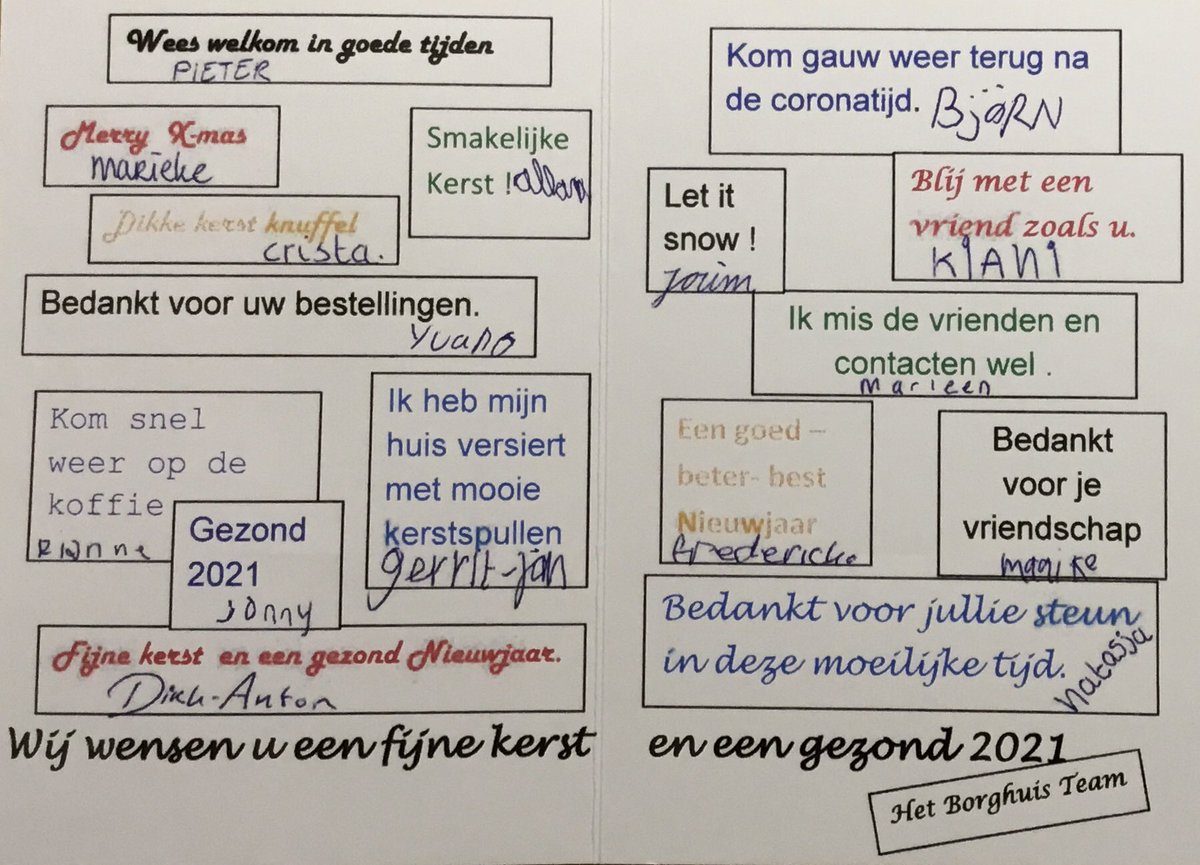 Wees welkom in goede tijden
PIETER
Merry X-mas
Marieke
Smakelijke
Kerst !
allan
Dikke kerst knuffel
crista.
Bedankt voor uw bestellingen.
Yvano
Kom snel
weer op de
koffie
Rianne
Ik heb mijn
huis versiert
met mooie
kerstspullen
gerrit-jan
Gezond
2021
Jonny
Fijne kerst en een gezond Nieuwjaar.
Dick-Anton
Wij wensen u een fijne kerst
Kom gauw weer terug na
de coronatijd.
BJØRN
Let it
snow !
Jorim
Blij met een
vriend zoals u.
KIANI
Ik mis de vrienden en
contacten wel .
Marleen
Een goed –
beter- best
Nieuwjaar
Bedankt
voor je
vriendschap
maaike
Bedankt voor jullie steun
in deze moeilijke tijd.
Natasja
en een gezond 2021
Het Borghuis Team